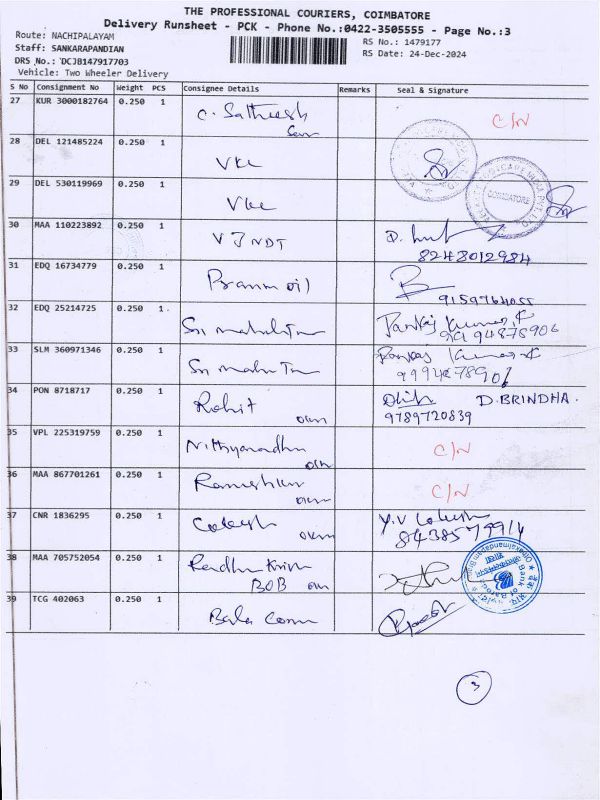 THE PROFESSIONAL COURIERS, COIMBATORE
Delivery Runsheet - PCK - Phone No.:0422-3505555 - Page No.:3
Route: NACHIPALAYAM
Staff: SANKARAPANDIAN
DRS No.: DCJB147917703
Vehicle: Two Wheeler Delivery
RS No.: 1479177
RS Date: 24-Dec-2024
S No Consignment No Weight PCS Consignee Details Remarks Seal & Signature
27 KUR 3000182764 0.250 1 C. Sathish C/N
28 DEL 121485224 0.250 1 VKC
29 DEL 530119969 0.250 1 VKC
COIMBATORE
30 MAA 110223892 0.250 1 V J NDT
8243012984
31 EDQ 16734779 0.250 1 oil
32 EDQ 25214725 0.250 1 Sri Pankaj Kumar.K
33 SLM 360971346 0.250 1 Sri Pankaj Kumar.K
34 PON 8718717 0.250 1 Rohit D.BRINDHA.
9789720839
35 VPL 225319759 0.250 1 C/N
36 MAA 867701261 0.250 1 C/N
37 CNR 1836295 0.250 1 Y.V
38 MAA 705752054 0.250 1
BOB
Bank of Baroda
39 TCG 402063 0.250 1 Bala
3